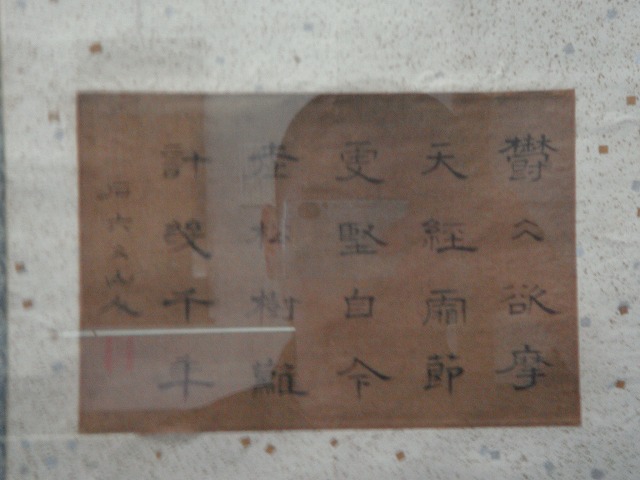 鬱々欲摩
天經霜節
更堅白今
老松樹難
計幾千年